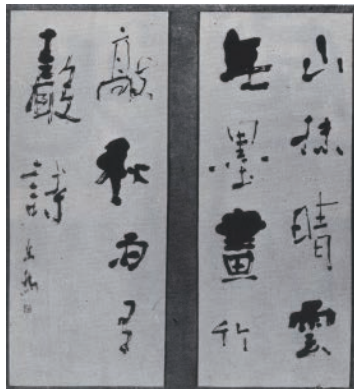 山抹晴雲
無墨畫竹
敲秋雨有
聲詩